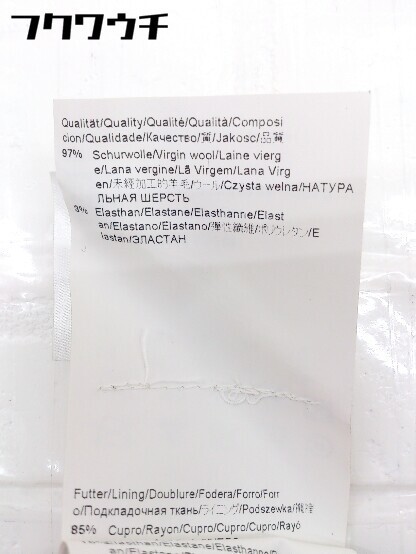 フクワウチ
Qualität/Quality/Qualité/Qualità/Composi
cion/Qualidade/Качество/質/Jakosc/品質
97% Schurwolle/Virgin wool/Laine vierg
e/Lana vergine/Lã Virgem/Lana Virg
en/未經加工的羊毛/ウール/Czysta welna/НАТУРА
ЛЬНАЯ ШЕРСТЬ
3% Elasthan/Elastane/Elasthanne/Elast
an/Elastano/Elastano/彈性纖維/ポリウレタン/E
lastan/ЭЛАСТАН
Futter/Lining/Doublure/Fodera/Forro/Forr
o/Подкладочная ткань/ライニング/Podszewka/
85% Cupro/Rayon/Cupro/Cupro/Cupro/Rayó
an/Elastano/